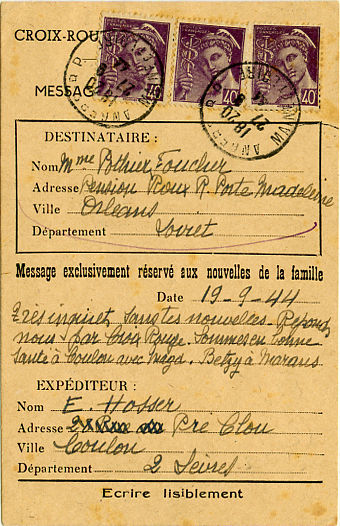 CROIX-ROU
MESSAG
40
40
40
18 20
27 - 9
18 20
27
DESTINATAIRE :
Nom Mme Pothier Foucher
Adresse Pension Rioux R. Porte Madeleine
Ville Orléans
Département Loiret
Message exclusivement réservé aux nouvelles de la famille
Date 19-9-44
Très inquiet, sans tes nouvelles. Réponds
nous par Croix Rouge. Sommes en bonne
santé à Coulon avec Betzy à Marans
EXPÉDITEUR :
Nom E. Hosser
Adresse Pré Clou
Ville Coulon
Département 2 Sèvres
Ecrire lisiblement